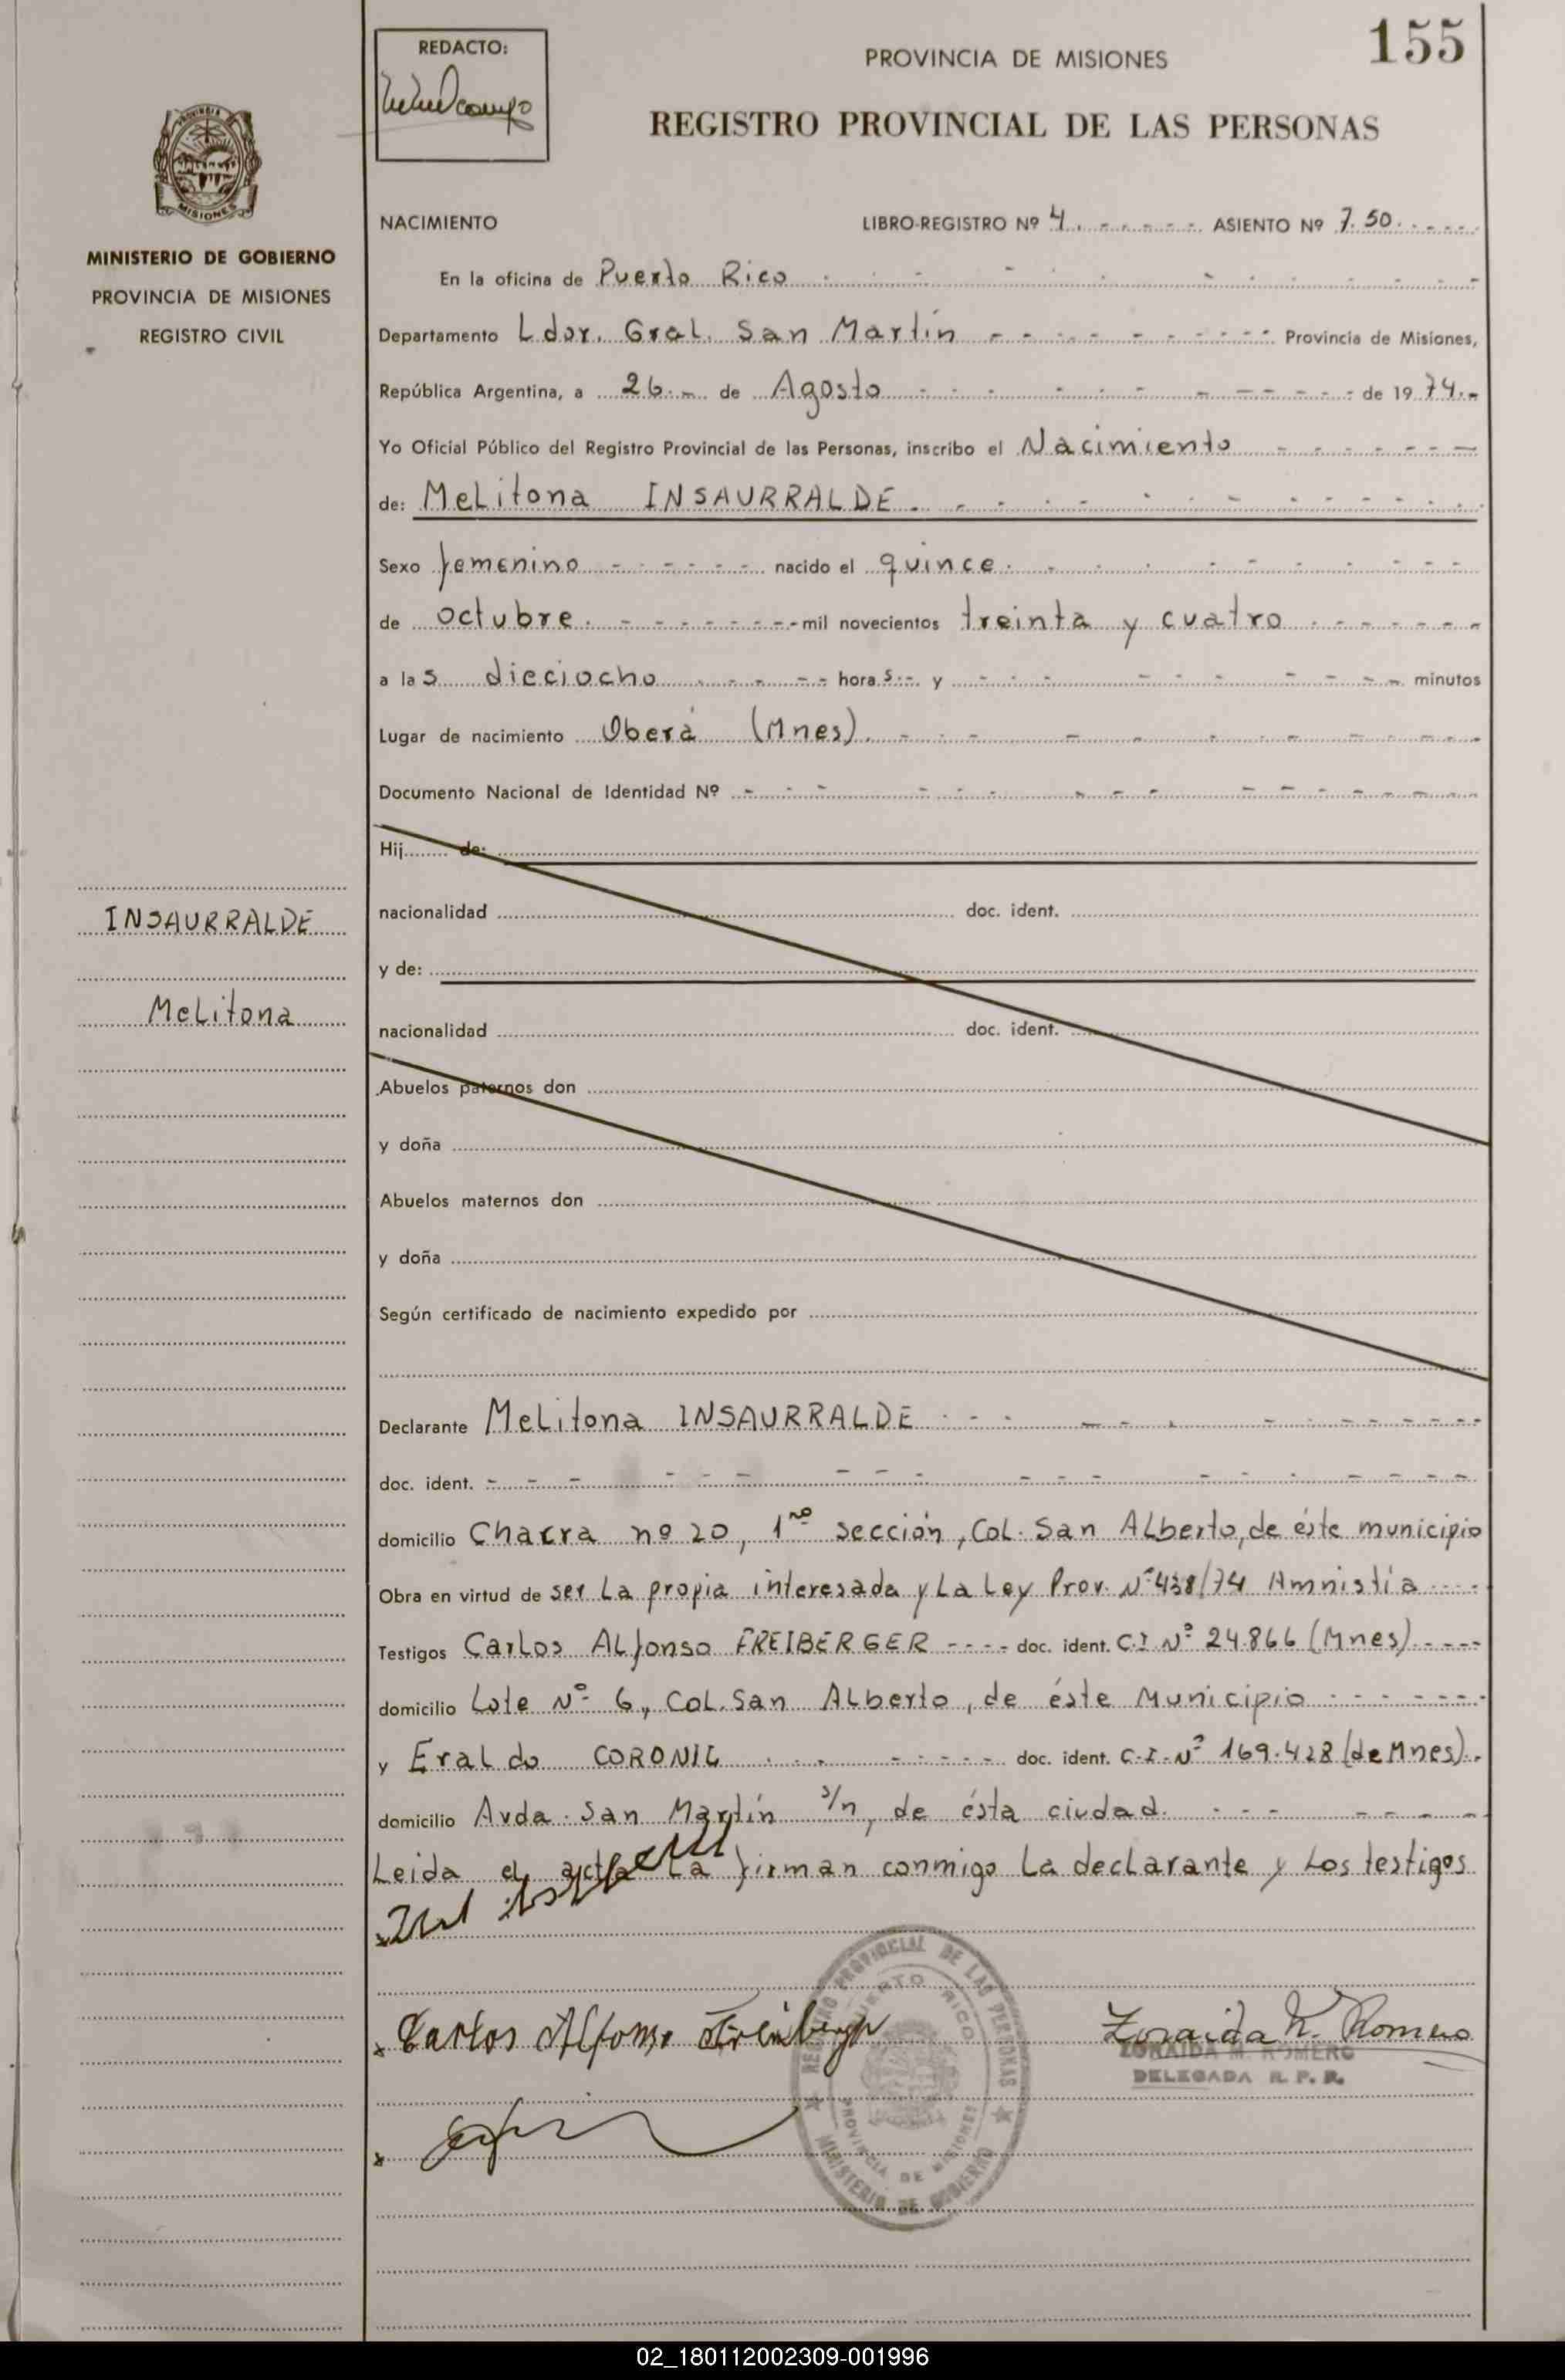 155
REDACTO:
PROVINCIA DE MISIONES
REGISTRO PROVINCIAL DE LAS PERSONAS
MISIONES
MINISTERIO DE GOBIERNO
PROVINCIA DE MISIONES
REGISTRO CIVIL
NACIMIENTO LIBRO-REGISTRO Nº 4. ASIENTO Nº 7.50.
En la oficina de Puerto Rico
Departamento Ldor. Gral. San Martín Provincia de Misiones,
República Argentina, a 26.- de Agosto de 19 74.-
Yo Oficial Público del Registro Provincial de las Personas, inscribo el Nacimiento
de: Melitona INSAURRALDE.
Sexo femenino nacido el quince.
de octubre. mil novecientos treinta y cuatro
a las dieciocho horas.- y minutos
Lugar de nacimiento Oberá (Mnes).
Documento Nacional de Identidad Nº
Hij de:
INSAURRALDE
nacionalidad doc. ident.
y de:
Melitona
nacionalidad doc. ident.
Abuelos paternos don
y doña
Abuelos maternos don
y doña
Según certificado de nacimiento expedido por
Declarante Melitona INSAURRALDE
doc. ident.
domicilio Chacra nº 20, 1ra sección, Col. San Alberto, de éste municipio
Obra en virtud de ser la propia interesada y la Ley Prov. Nº 438/74 Amnistía
Testigos Carlos Alfonso FREIBERGER doc. ident. C.I Nº 24.866 (Mnes).
domicilio Lote Nº 6, Col. San Alberto, de éste Municipio
y Eraldo CORONIL doc. ident. C.I. Nº 169.428 (de Mnes).
domicilio Avda. San Martín s/n, de ésta ciudad.
Leida el acta la firman conmigo la declarante y los testigos
REGISTRO PROVINCIAL DE LAS PERSONAS
PUERTO RICO
PROVINCIA DE MISIONES
MINISTERIO DE GOBIERNO
x Carlos Alfonso Freiberger
Zoraida M. Romero
ZORAIDA M. ROMERO
DELEGADA R. P. P.
x
02_180112002309-001996